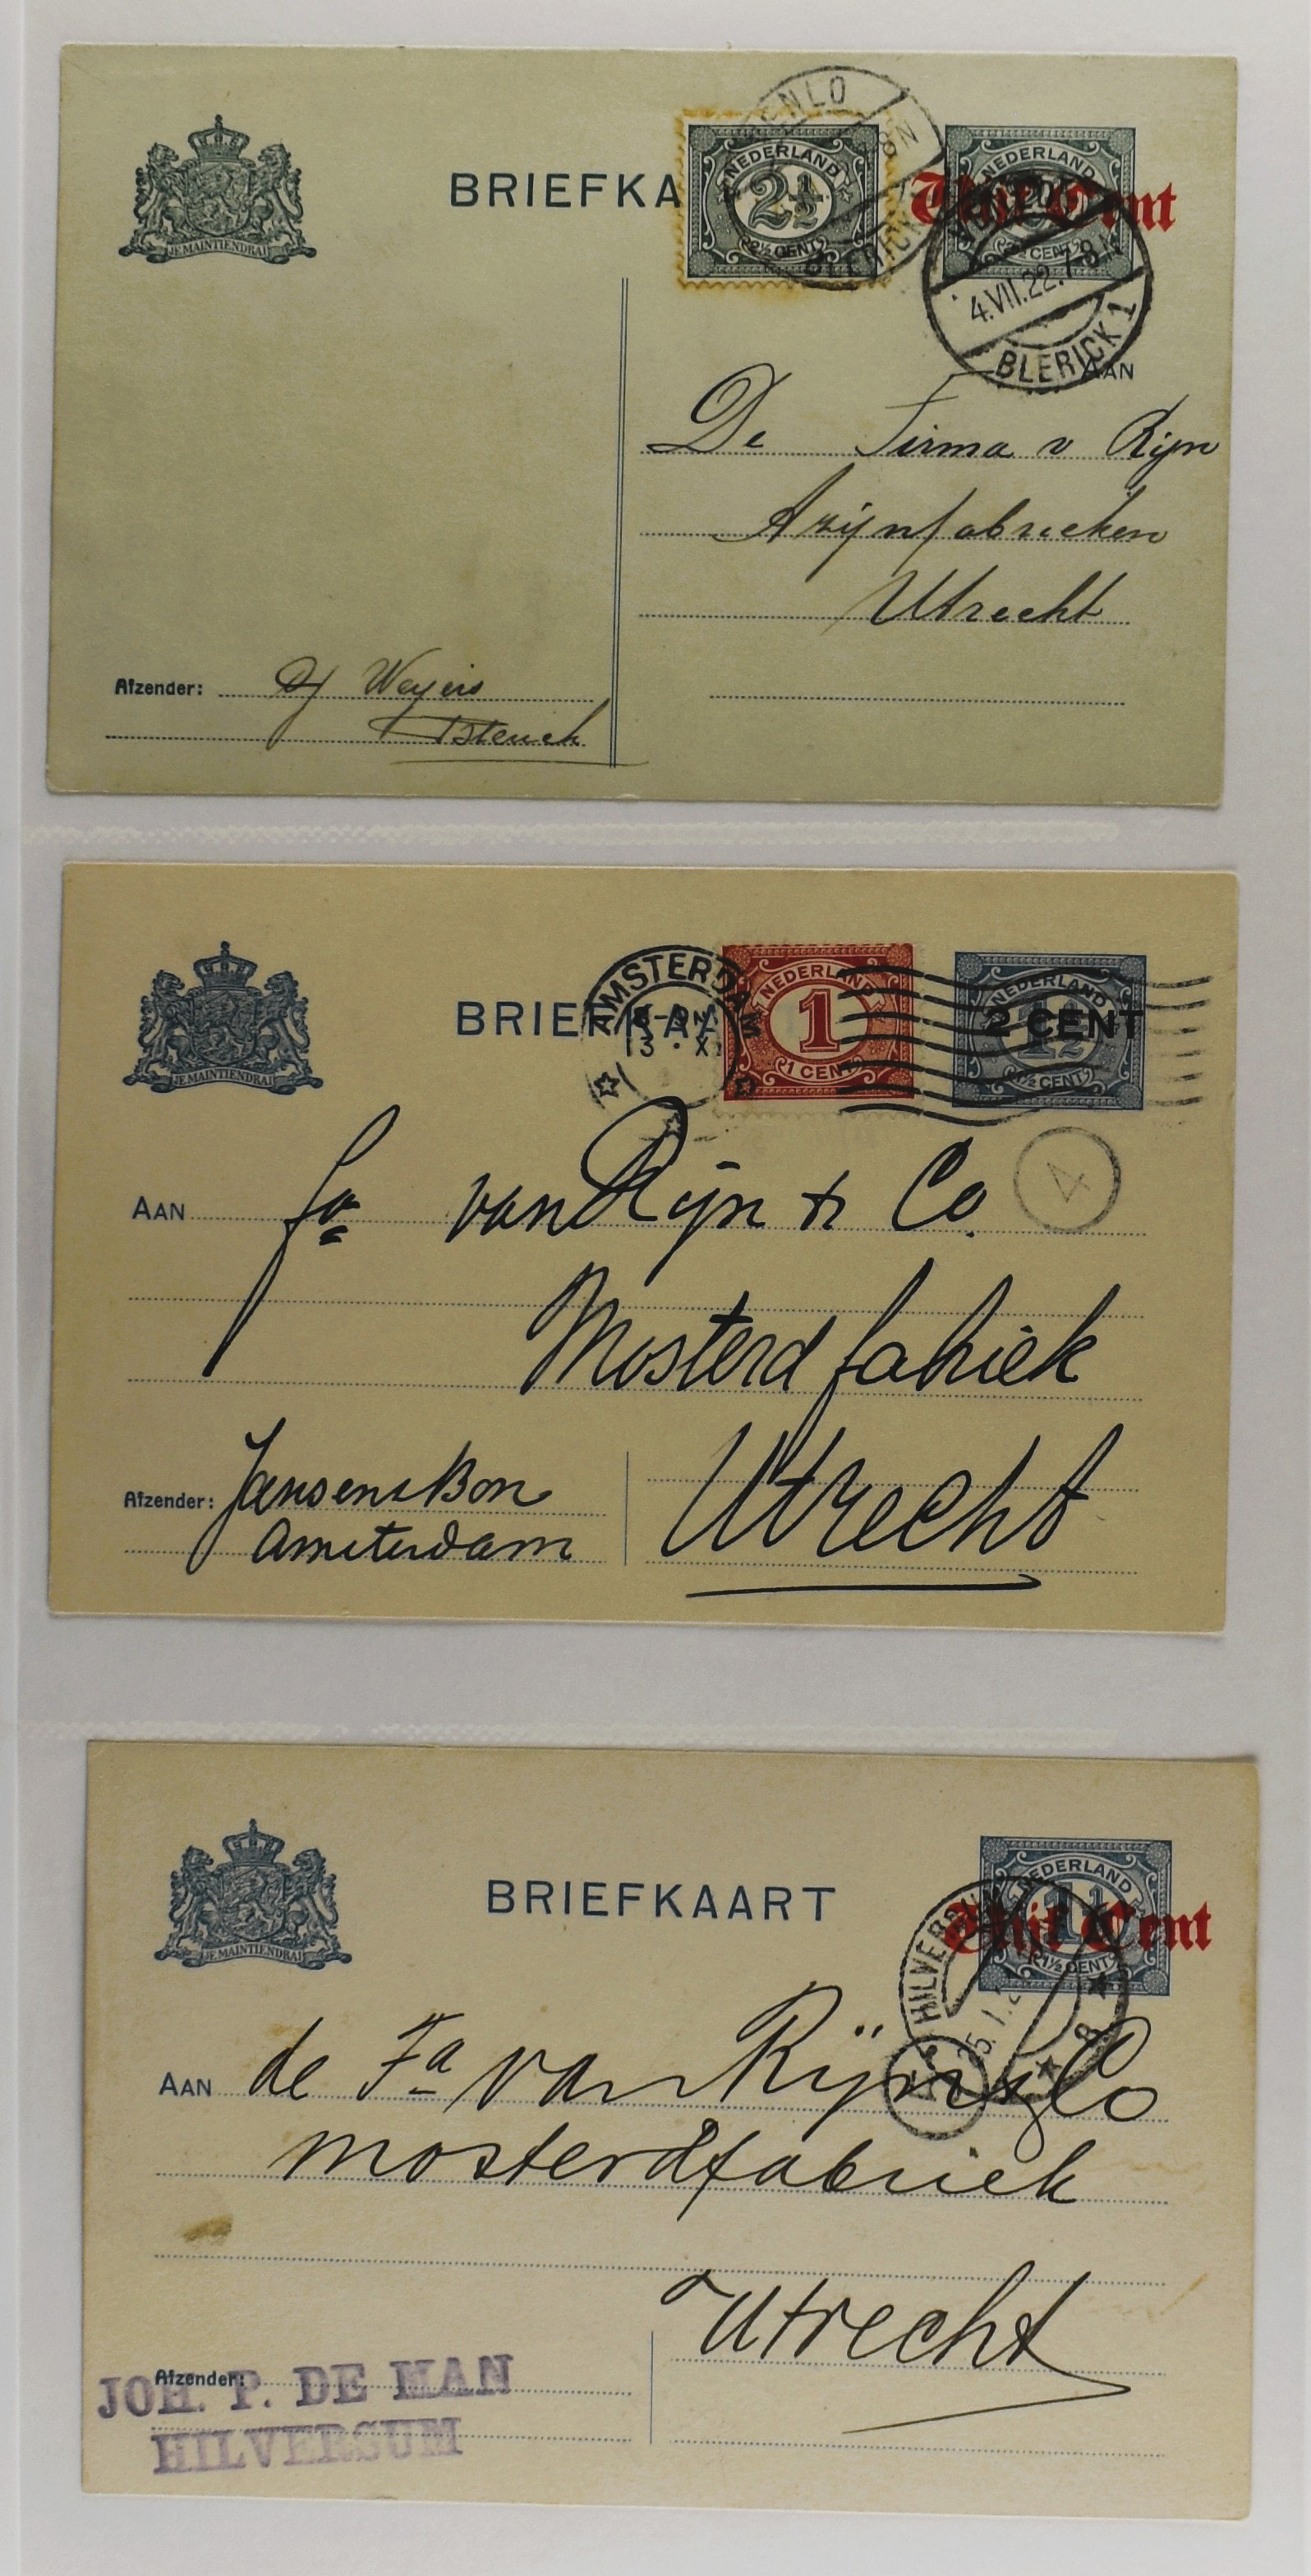 JE MAINTIENDRAI
BRIEFKA
VENLO
8N
BLERICK
NEDERLAND
2½
2½ CENT
NEDERLAND
Vijf Cent
2½ CENT
4.VII.22.7-8N
BLERICK 1
AAN
De Firma v Rijn
Azijnfabrieken
Utrecht
Afzender: Weyers
JE MAINTIENDRAI
BRIEFKAA
AMSTERDAM
NEDERLAND
1
1 CENT
NEDERLAND
2 CENT
1½
1½ CENT
4
AAN fa van Rijn & Co.
Mosterdfabriek
Utrecht
Afzender: Jansen & Bon
Amsterdam
JE MAINTIENDRAI
BRIEFKAART
NEDERLAND
1½
Vijf Cent
1½ CENT
HILVERSUM
AAN de Fa van Rijn & Co
mosterdfabriek
Utrecht
Afzender:
JOH. P. DE MAN
HILVERSUM